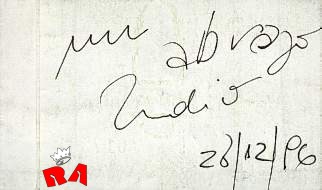 un abrazo
Indio
28/12/96
RA